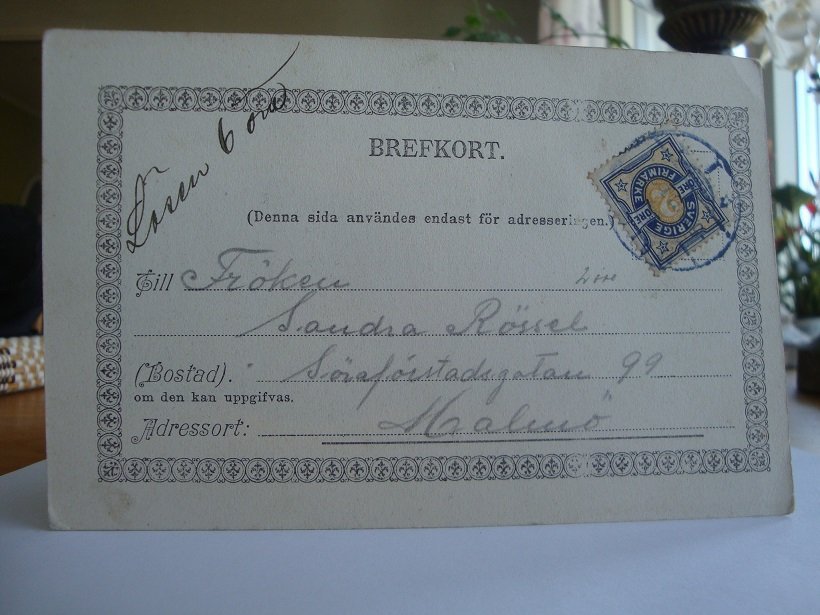 Lösen 6 öre
BREFKORT.
(Denna sida användes endast för adresseringen.)
SVERIGE
FRIMÄRKE
2
ÖRE
ÖRE
Till Fröken
Sandra Rössel
(Bostad). Söraförstadsgatan 99
om den kan uppgifvas.
Adressort: Malmö